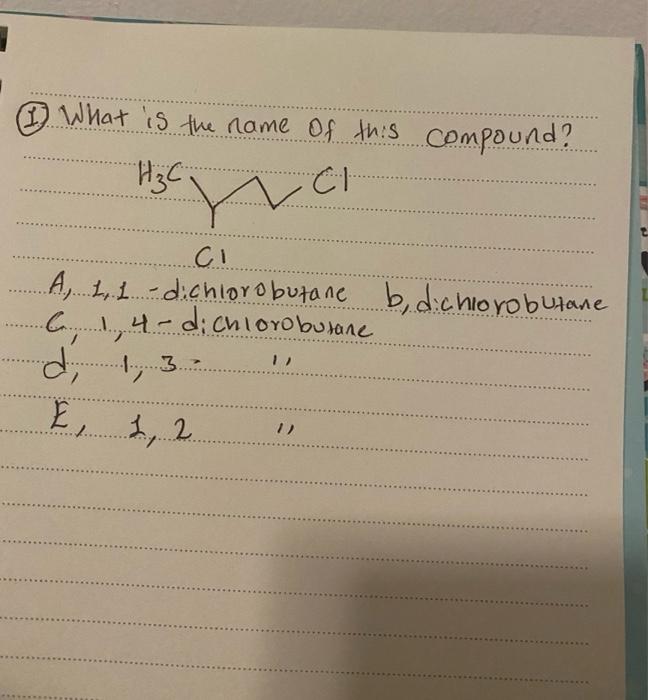 ① What is the name of this compound?
H₃C Cl
Cl
A, 1,1 - dichlorobutane b, dichlorobutane
C, 1,4 - dichlorobutane
d, 1,3 - "
E, 1,2 "